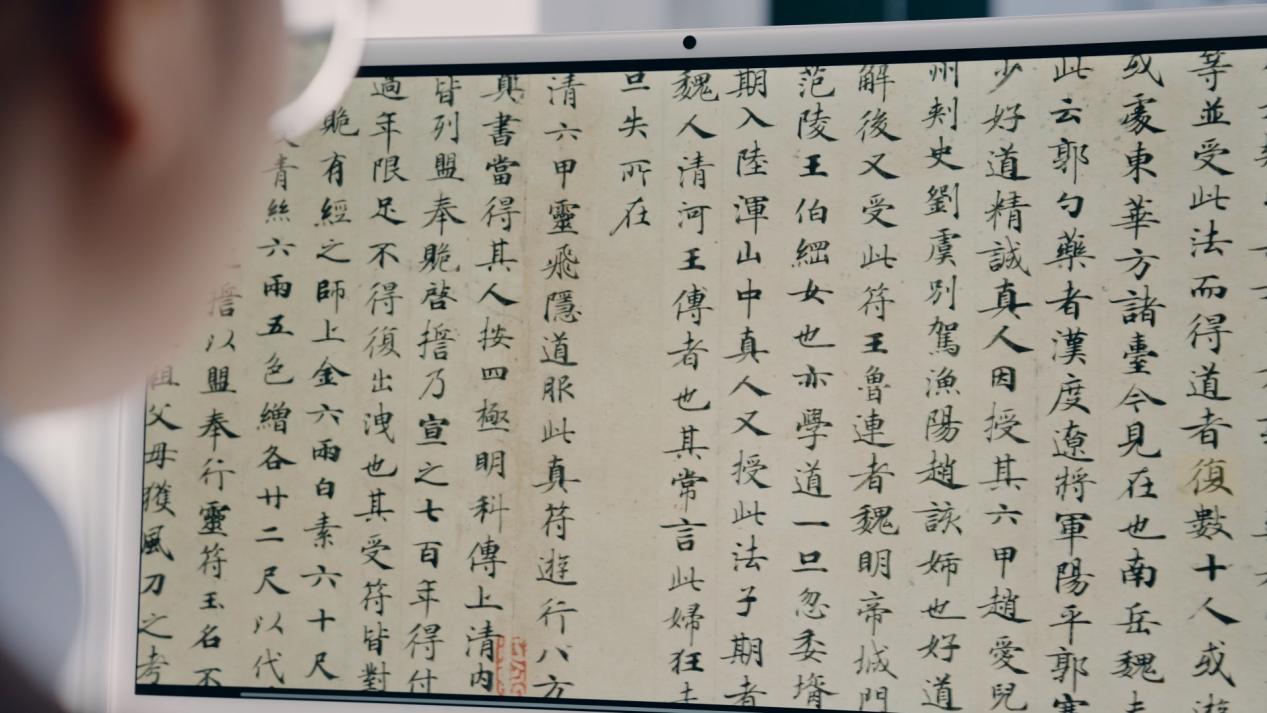 等並受此法而得道者復數十人或遊
或處東華方諸臺今見在也南岳魏夫
此云郭勺藥者漢度遼將軍陽平郭騫
少好道精誠真人因授其六甲趙愛兒
州刾史劉虞別駕漁陽趙該姊也好道
解後又受此符王魯連者魏明帝城門
范陵王伯綱女也亦學道一旦忽委壻
期入陸渾山中真人又授此法子期者
魏人清河王傳者也其常言此婦狂走
旦失所在
清六甲靈飛隱道服此真符遊行八方
真書當得其人按四極明科傳上清内
皆列盟奉跪啓擔乃宣之七百年得付
過年限足不得復出洩也其受符皆對
跪有經之師上金六兩白素六十尺
青絲六兩五色繒各廿二尺以代
擔以盟奉行靈符玉名不
祖父母獲風刀之考